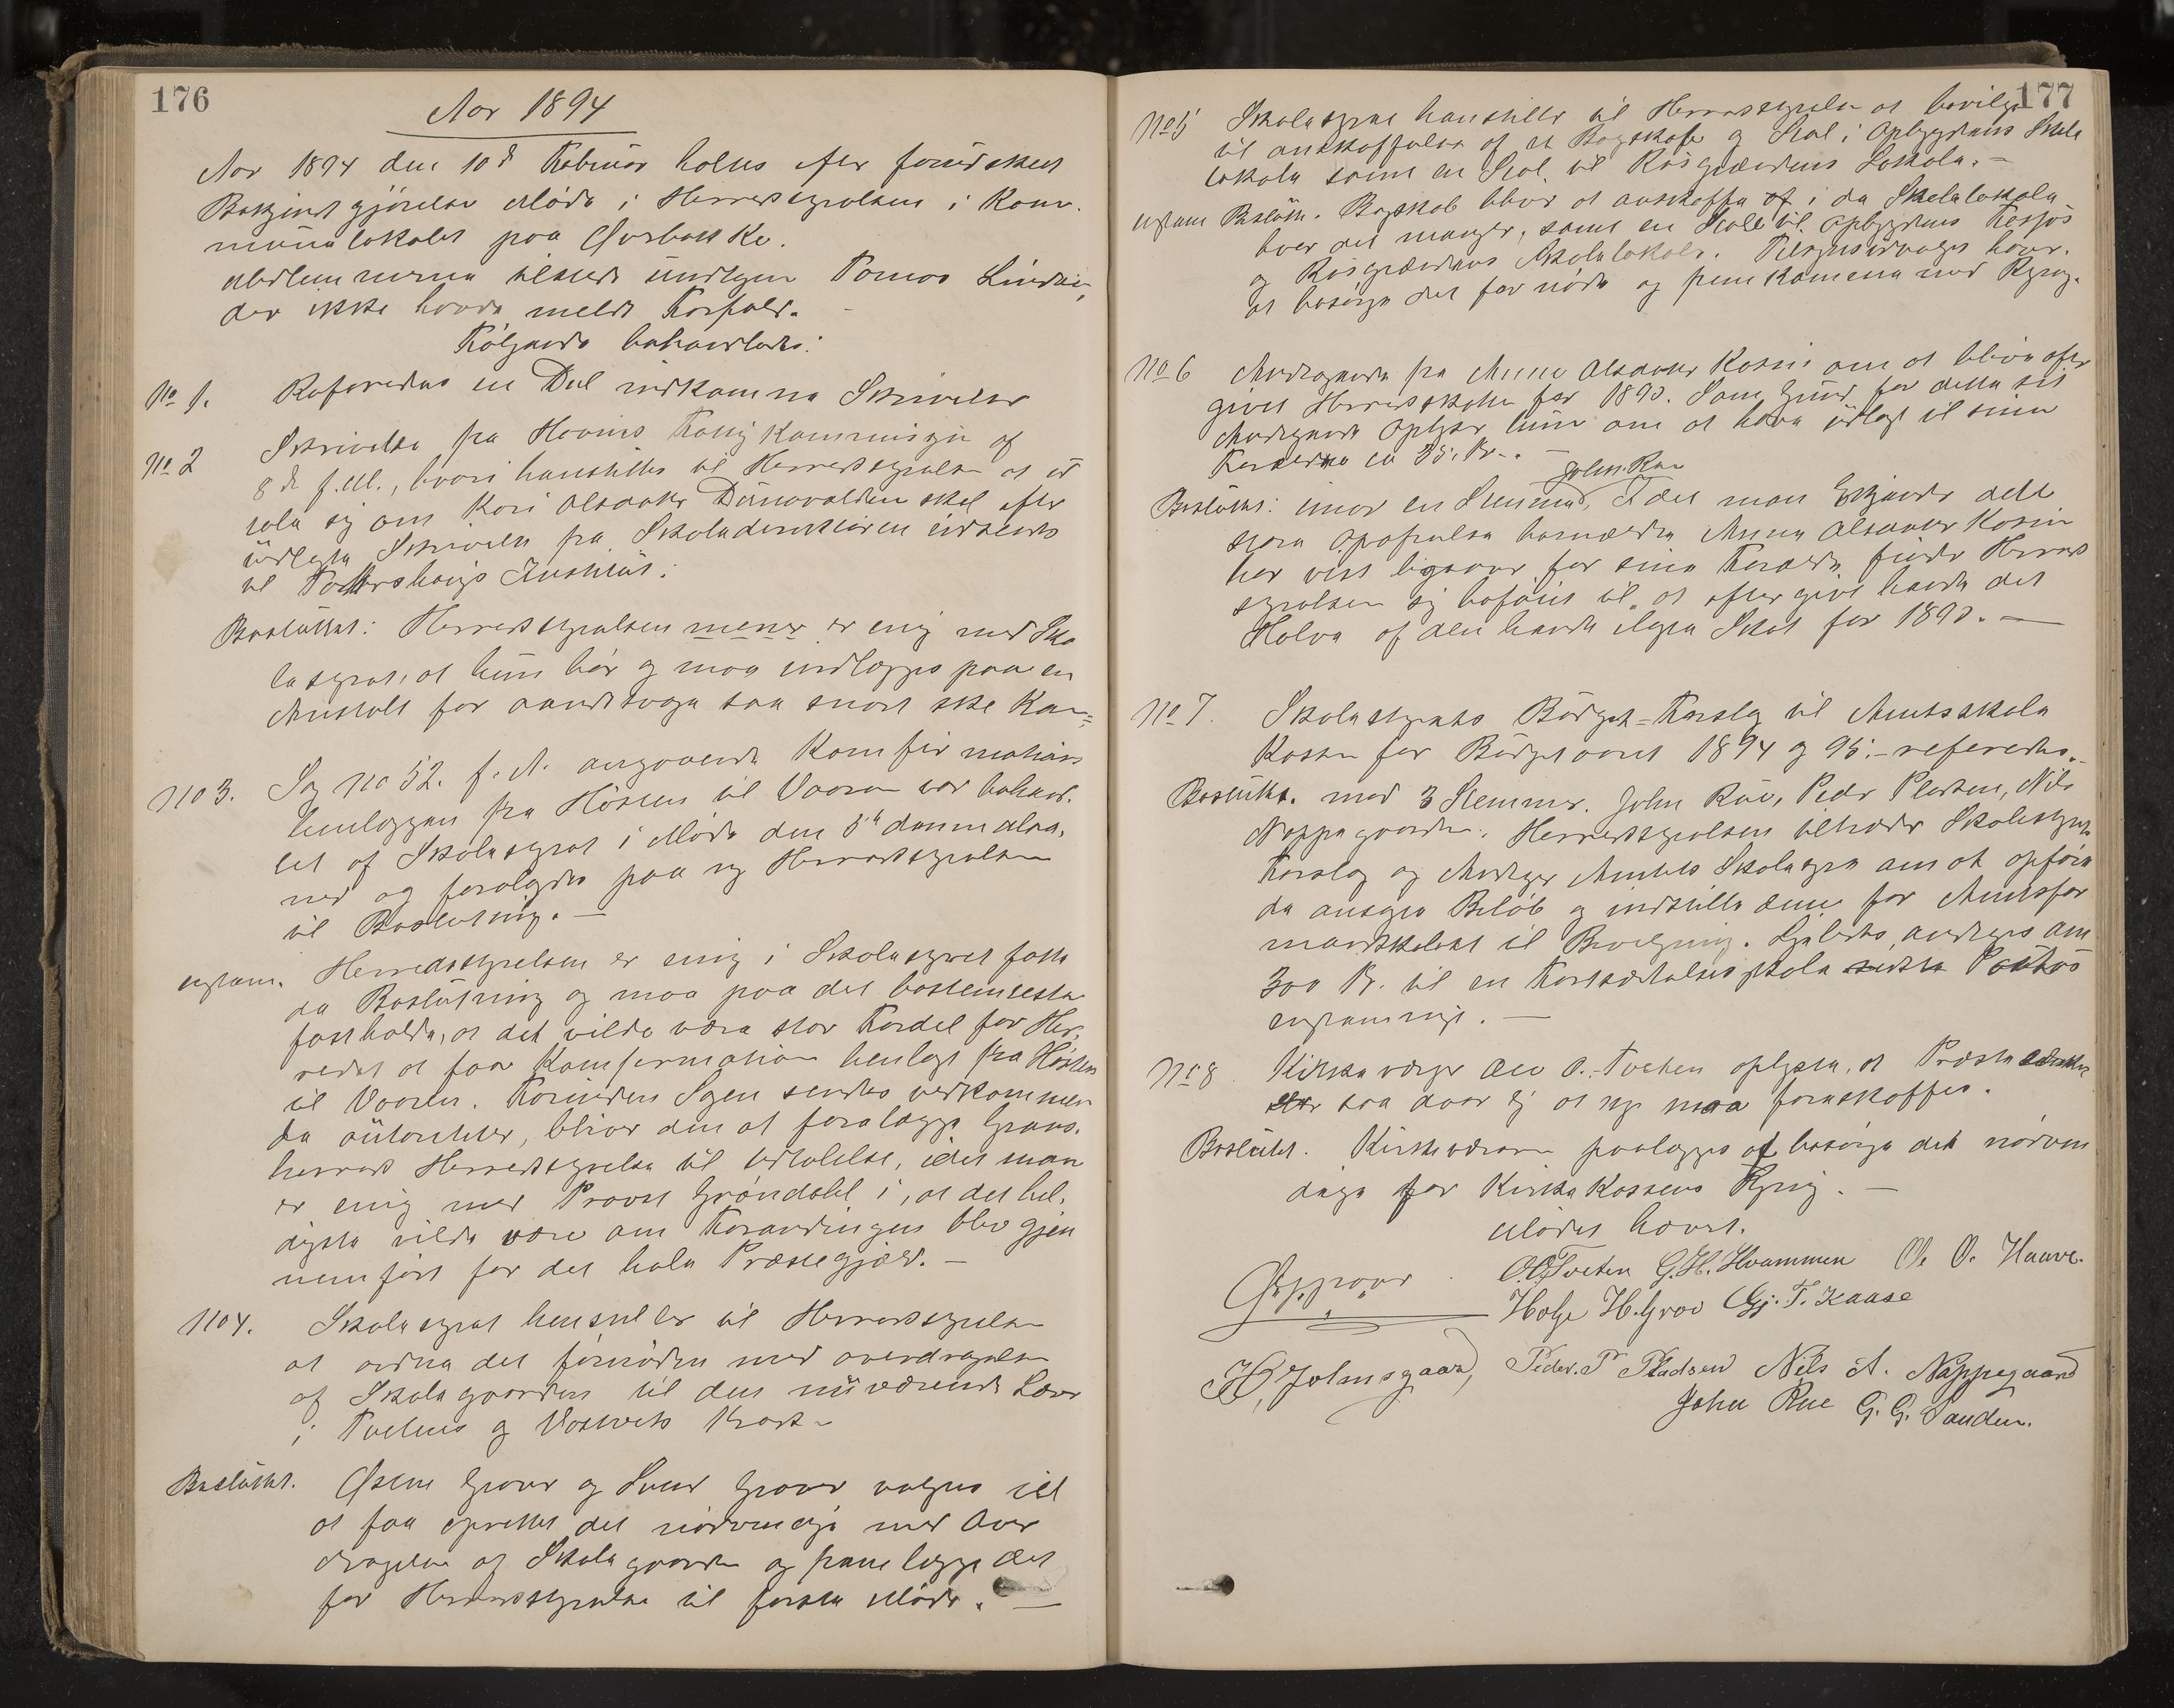 176
Aar 1894
Aar 1894 den 10de Februar holtes efter forudskeet
Bekjendtgjørelse Møde i Herredsstyrelsen i Kom-
munelokalet paa Øverbakke.
Medlemmerne tilstede undtagen Tomas Lindvig,
der ikke havde meldt Forfald.
Følgende behandledes:
No 1. Refereredes en Deel indkomne Skrivelser
No 2 Skrivelse fra Hovins Fattigkommission af
8de f.M., hvori henstilles til Herredsstyrelsen at ud
tale sig om Kari Alsaker Dønnevalden skal efter
udlagte Skrivelse fra Skoledirektøren udsendes
til Institut.
Besluttet: Herredsstyrelsen mener er enig med Sko
lestyret, at hun bør og maa indlægges paa en
Anstalt for aandssvage saa snart ske kan
No 3. Sag No 52. f. A. angaaende Komfirmations
henlæggen fra Høsten til Vaaren var behand-
let af Skolestyret i Møde den 5te denne Maa-
ned og forelagdes paa ny Herredsstyrelsen
til Beslutning. —
enstem. Herredsstyrelsen er enig i Skolestyret fatte
de Beslutning og maa paa det bestemteste
fastholde, at det vilde være stor Fordel for Her-
redet at faa Komfirmation henlagt fra Høsten
til Vaaren. Forinden Sagen sendes vedkommen
de autoriteter, bliver den at forelægge Grans-
herred Herredsstyrelse til Udtalelse, idet man
er enig med Provst Grøndahl i, at det hel-
digste vilde være om Forandringen blev gjen
nemført for det hele Præstegjæld. —
No 4. Skolestyret henstiller til Herredsstyrelsen
at ordne det fornødne med overdragelsen
af Skolegaarden til den nuværende Lærer
i Tveitens og Kreds
Besluttet. Østen Graver og Svend Graver valgtes til
at faa oprettet det nødvendige med Over
dragelse af Skolegaarden og fremlægge det
for Herredsstyrelse til første Møde. —
177
No 5 Skolestyret henstiller til Herredsstyrelsen at bevilge
til anskaffelse af et Bogskab og Stol i Opbygdens Skole
lokale samt en Stol til Røsgrændens Lokale. —
enstem Beslutt. Bogskab blir at anskaffe af i de Skolelokale
hvor det mangler, samt en Stoel til Opbygdens
og Røsgrændens Skolelokale. Tilsynsudvalget haver
at besørge det fornødne og fremkomme med Regning.
No 6 Andragende fra Anne Alsaker Kasin om at blive efter
givet Herredsskatten for 1893. Som Grund for dette sit
Andragende oplyser hun om at have udlagt til sine
Forældre ca 35. Kr. —
John Rue
Besluttet: imod en Stemme, Idet man Erkjender dette
store opofrelse Anne Alsaker Kasin
har vist ligeover for sine Forældre finder Herreds
styrelsen sig beføiet til at eftergive hende det
Halve af den hende ilagte Skat for 1893. —
No 7. Skolestyrets Budget-Forslag til Amtsskole
Kassen for Budgetaaret 1894 og 95. refereredes.
Besluttet. med 3 Stemmer. John Rue, Peder Pladsen, Nils
Nappegaarden. Herredsstyrelsen tiltræder Skolestyrets
Forslag og Andrager Amtets Skolestyre om at opføre
de ansøgte Beløb og indstille denne for Amtsfor
mandskabet til Bevilgning. Ligeledes andrages om
300 Kr. til en Fortsættelsesskole
enstemmigt. —
No 8 Kirkeværge Ole O. Tveten oplyste, at Præste
er saa daarlig at ny maa fornskaffes.
Besluttet. Kirkeværgen paalægges at besørge det nødven
dige for Kirkekassens Regning. —
Mødet hævet.
O. O. Tveten G. H. Hvammen O. O. Haave.
Holje H. Grov Gj. T. Kaase
H. Jolmsgaard, Peder. P Pladsen Nils A. Nappegaard
John Rue G. G. Sanden.